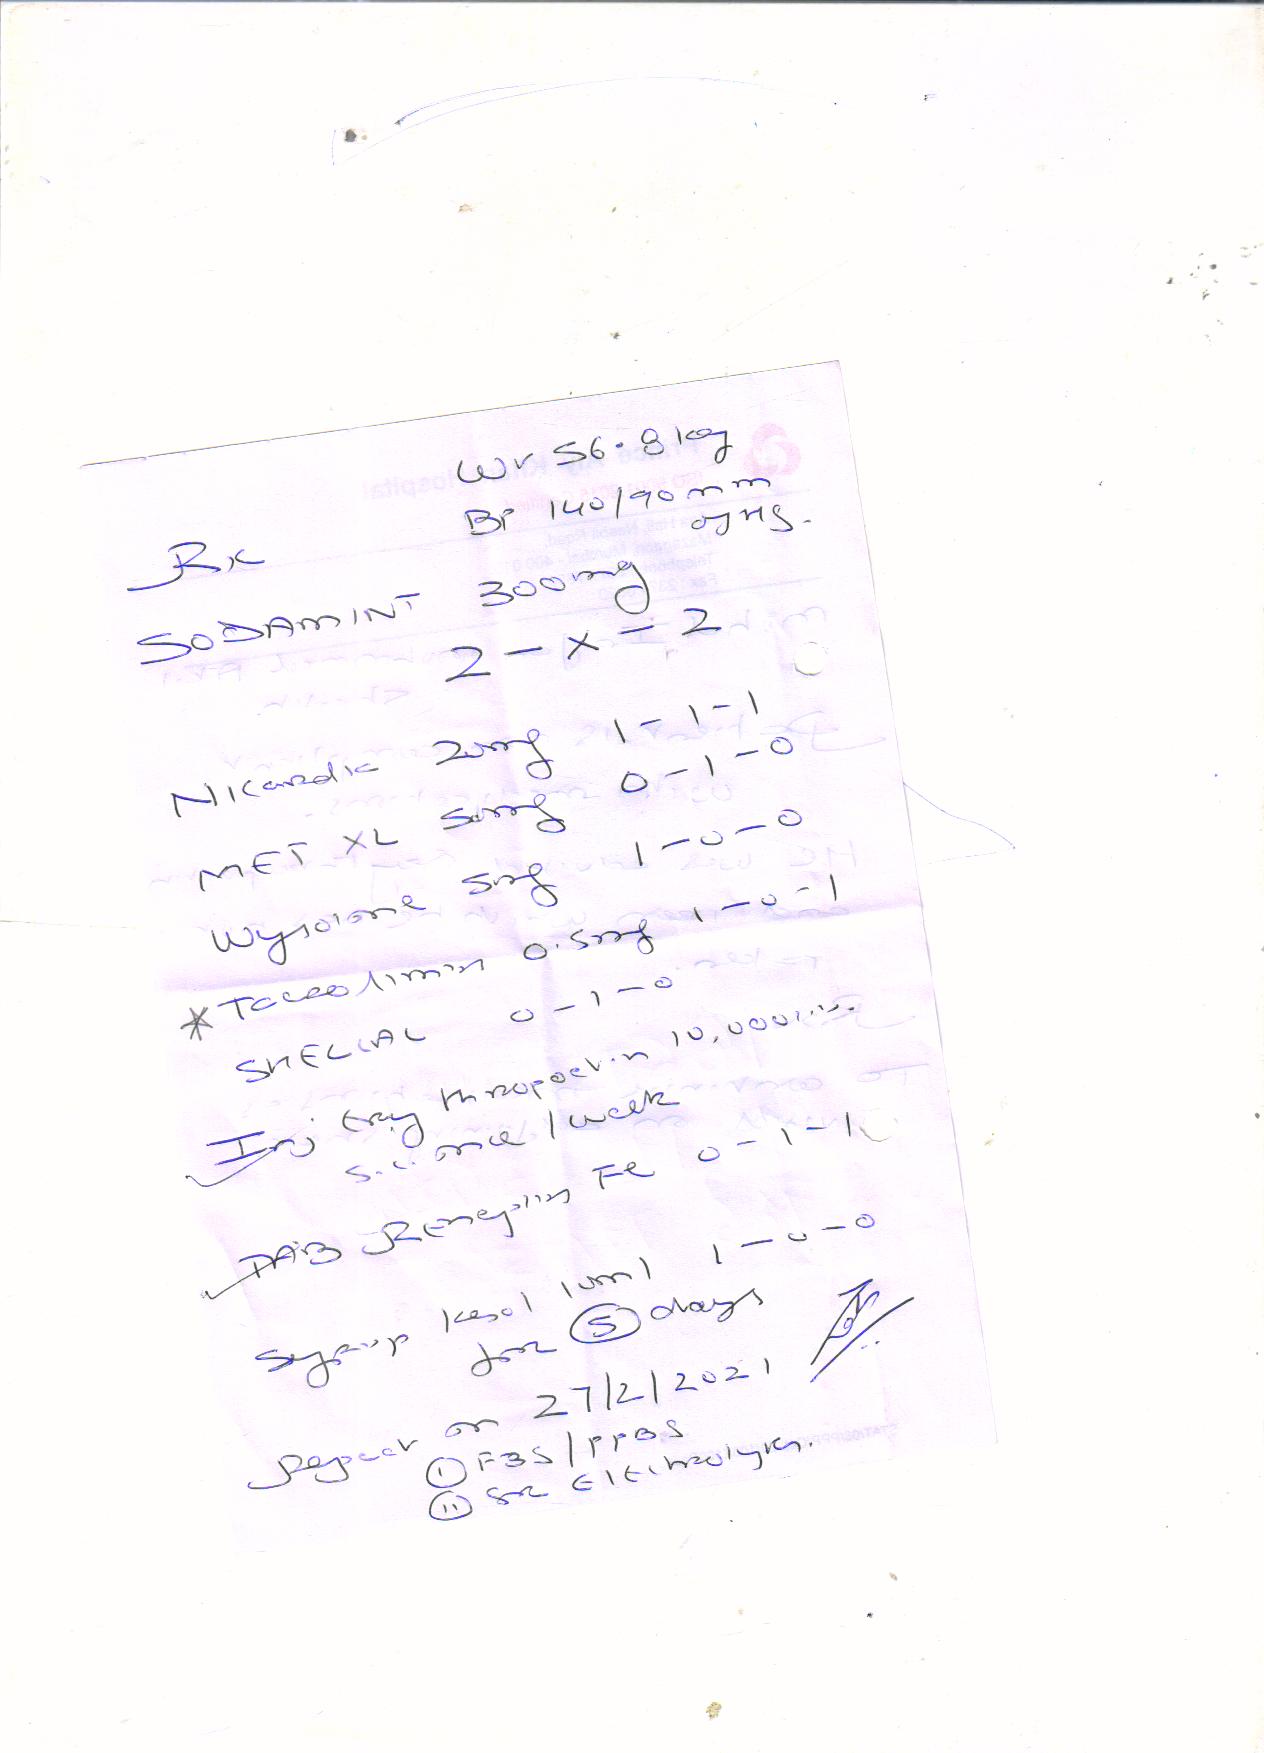 Wt 56.8 kg
BP 140/90 mm
of HG.
Rx
SODAMINT 300mg
2 - x - 2
Nicardia 20mg 1 - 1 - 1
MET XL 50mg 0 - 1 - 0
Wysolone 5mg 1 - 0 - 0
* Tacrolimin 0.5mg 1 - 0 - 1
SHELCAL 0 - 1 - 0
Inj Erythropoetin 10,000
S.C. once / week
TAB Fe 0 - 1 - 1
Syrup Kesol 10ml 1 - 0 - 0
for 5 days
Repeat on 27/2/2021
(i) FBS / PPBS
(ii) Sr Electrolytes.